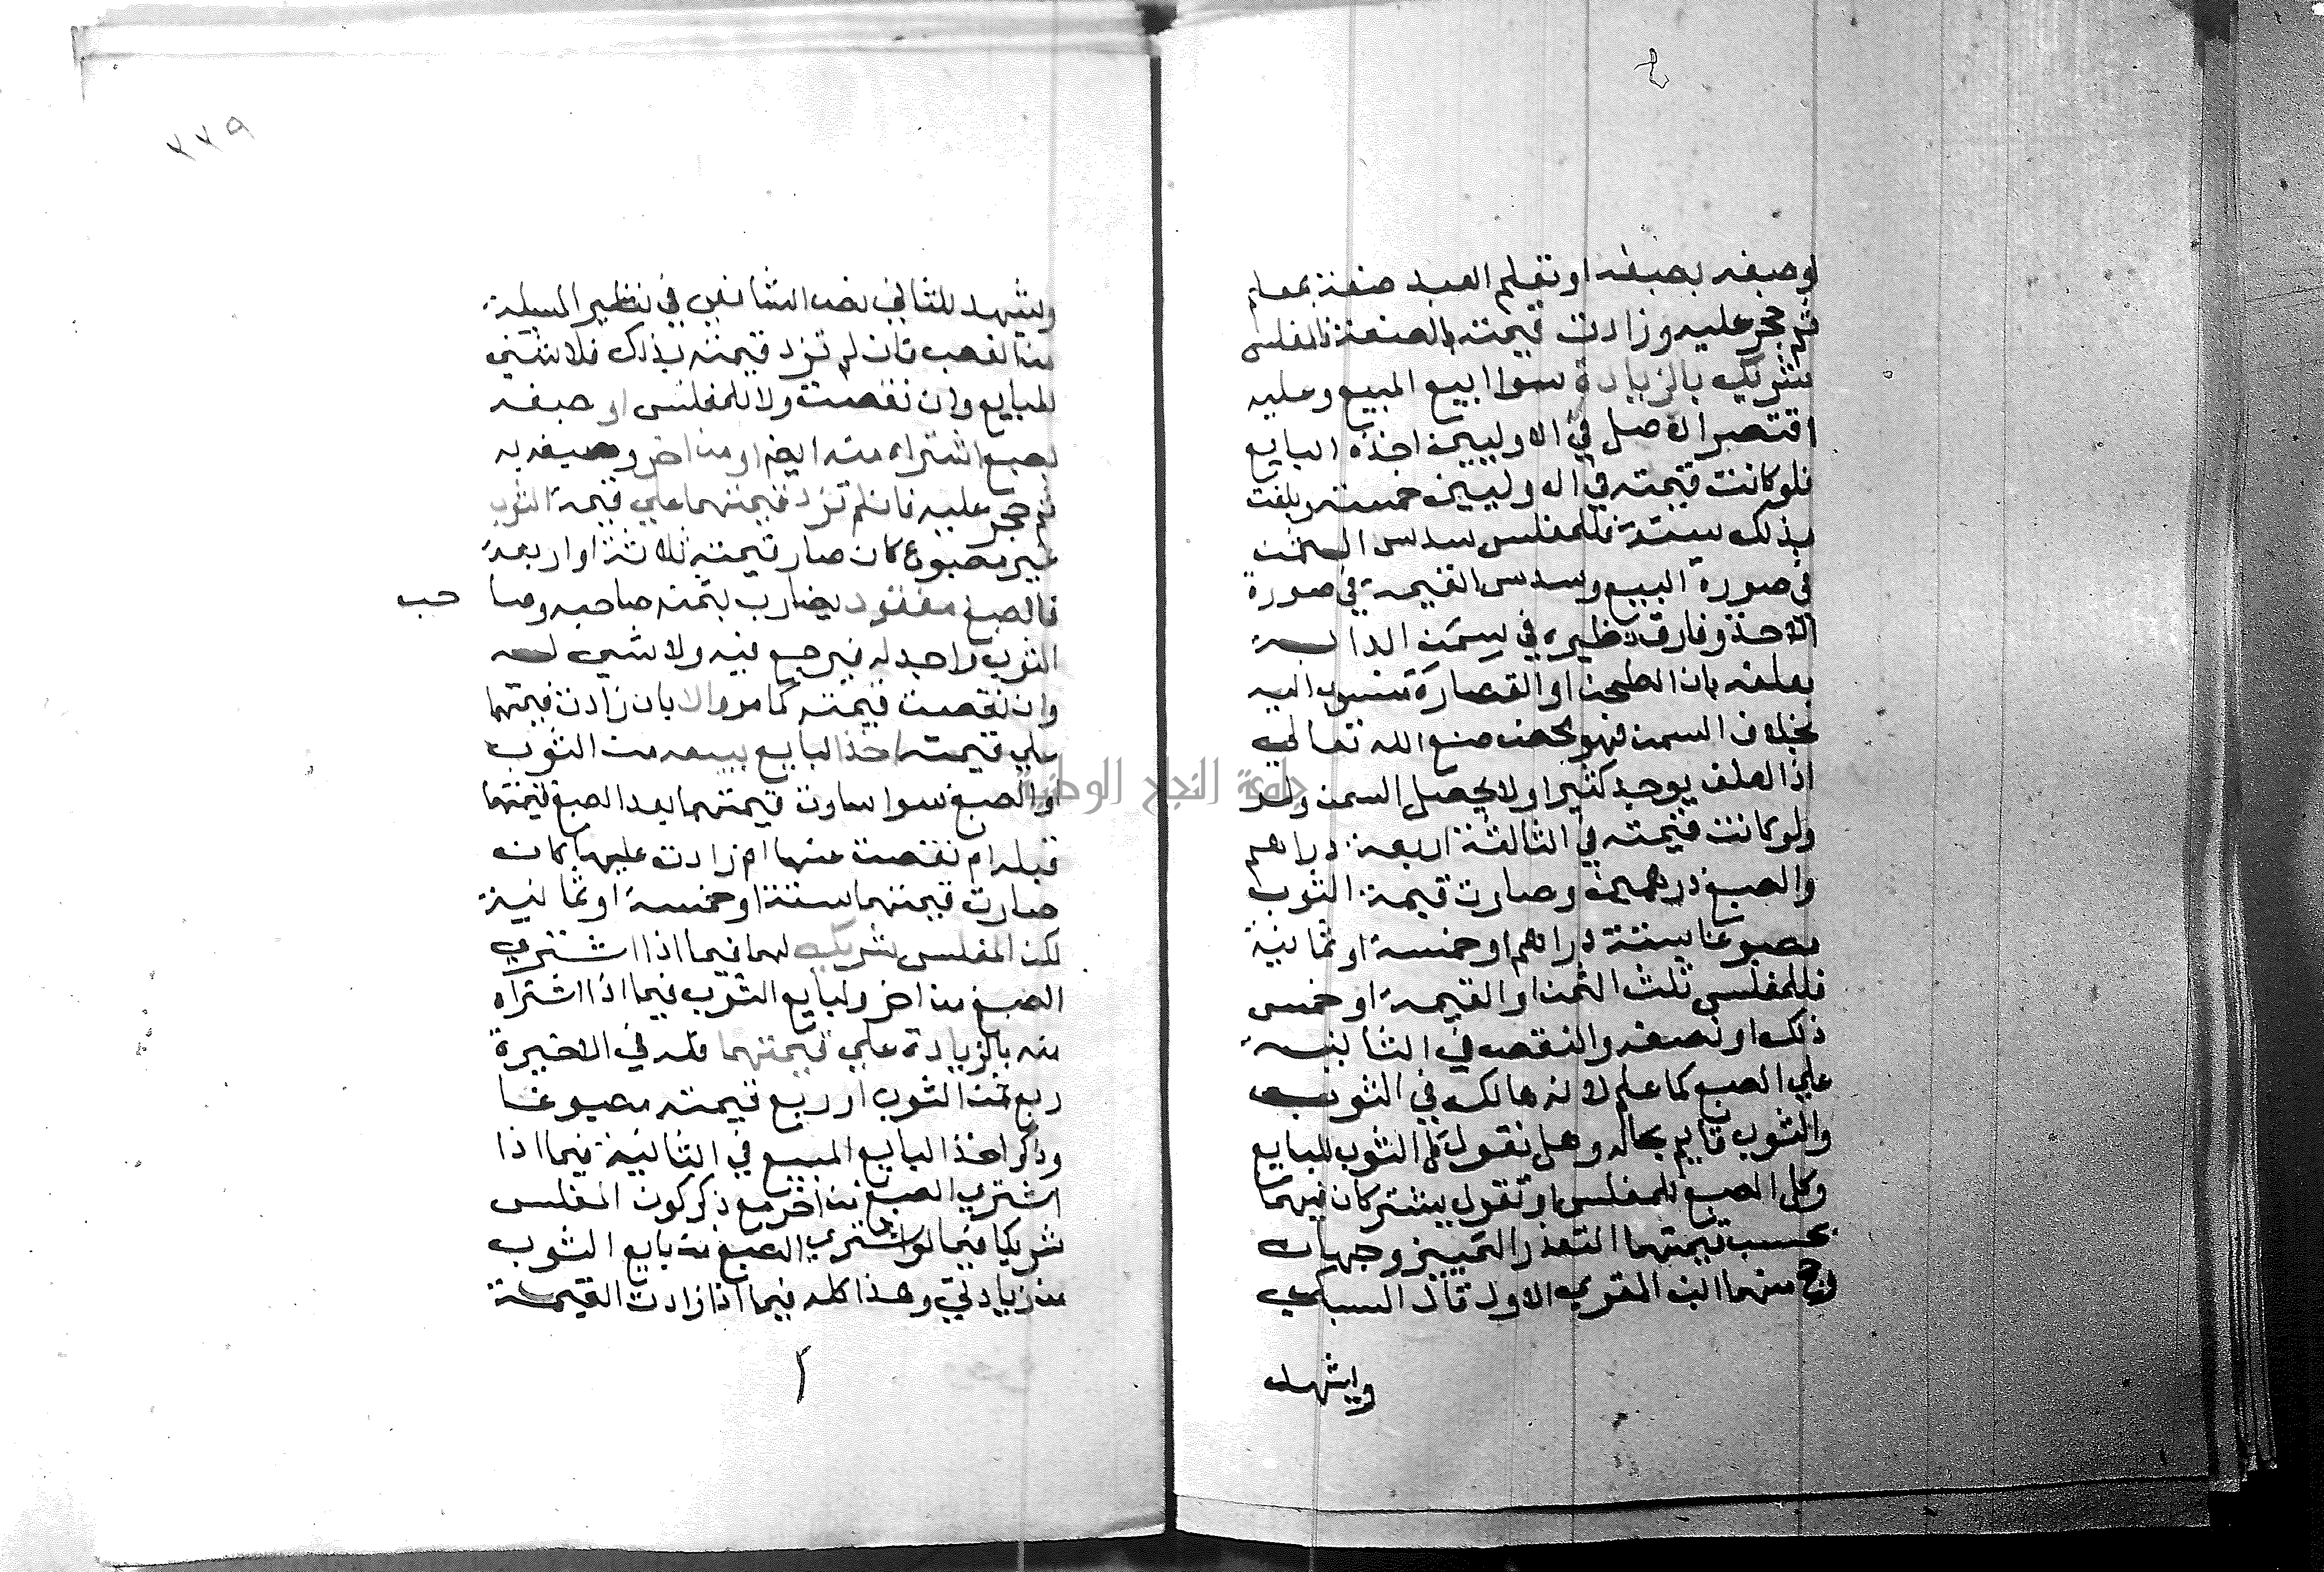 او صبغه بصبغه او تعلم العبد صنعة بمعلم
ثم حجر عليه وزادت قيمته بالصنعة فالمفلس
شريك بالزيادة سوا ابيع المبيع وعليه
اقتصر الاصل في الاوليين اخذه البايع
فلو كانت قيمته في الاوليين خمسة وبلغت
بذلك ستة فللمفلس سدس الثمن
في صورة البيع وسدس القيمة في صورة
الاخذ وفارق نظيره في سمن الدابة
بعلفه بان الطحن او القصارة منسوب اليه
بخلاف السمن فهو محض صنع الله تعالي
اذا العلف يوجد كثيرا ولا يحصل السمن
ولو كانت قيمته في الثالثة اربعة دراهم
والصبغ درهمين وصارت قيمة الثوب
مصبوغا ستة دراهم او خمسة او ثمانية
فللمفلس ثلث الثمن او القيمة او خمس
ذلك او نصفه والنقص في الثانية
علي الصبغ كما علم لانه هالك في الثوب
والثوب قايم بحاله وهل نقول كل الثوب للبايع
وكل الصبغ للمفلس او نقول يشتركان فيهما
بحسب قيمتهما لتعذر التمييز وجهان
رجح منهما ابن المقري الاول قال السبكي
ويشهد
٢٢٩
ويشهد للثاني نص الشافعي في نظير المسيلة
من الغصب فان لم تزد قيمته بذلك فلا شيي
للبايع وان نقصت ولا للمفلس او صبغه
بصبغ اشتراه منه ايضا او من اخر وصبغه به
ثم حجر عليه فان لم تزد قيمتهما علي قيمة الثوب
غير مصبوغ كان صار قيمته ثلاثة او اربعة
فالصبغ مفقود يضارب بثمنه صاحبه وصا حب
الثوب واجد له فيرجع فيه ولا شيي له
وان نقصت قيمته كما مر والا بان زادت قيمتهما
علي قيمته اخذ البايع مبيعه من الثوب
او الصبغ سوا ساوت قيمتهما بعد الصبغ قيمتهما
قبله ام نقصت عنها ام زادت عليها كان
صارت قيمتهما ستة او خمسة او ثمانية
لكن المفلس شريك لهما فيما اذا اشتري
الصبغ من اخر ولبايع الثوب فيما اذا اشتراه
منه بالزيادة علي قيمتهما فله في الاخيرة
ربع ثمن الثوب او ربع قيمته مصبوغا
وذكر اخذ البايع المبيع في الثانية فيما اذا
اشتري الصبغ من اخر مع ذكر كون المفلس
شريكا فيما لو اشتري الصبغ من بايع الثوب
من زيادتي وهذا كله فيما اذا زادت القيمة
جامعة النجاح الوطنية